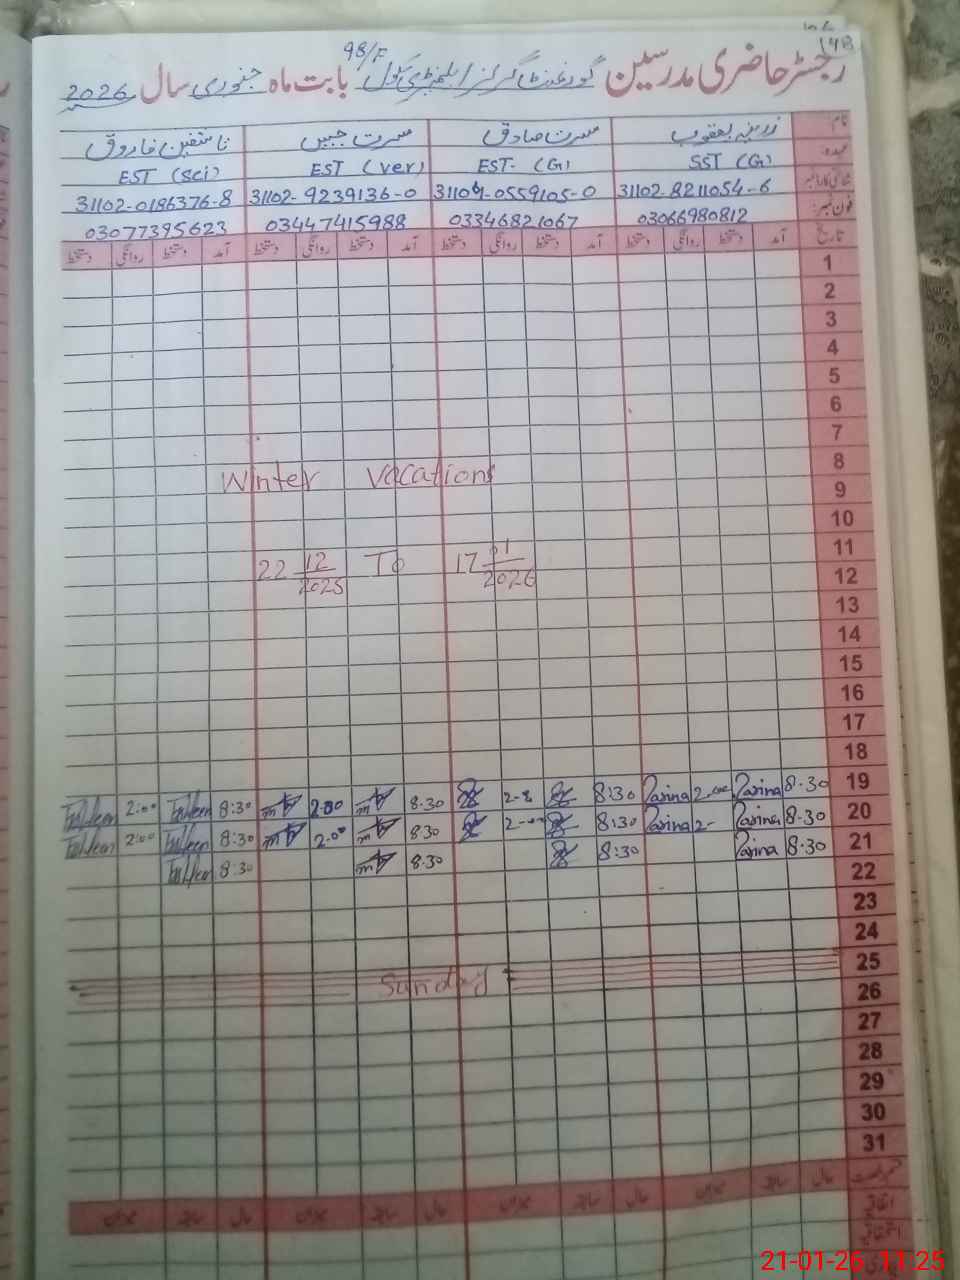 98/F
رجسٹر حاضری مدرسین گورنمنٹ گرلز ایلیمنٹری سکول بابت ماہ جنوری سال 2026
نام زرینہ یعقوب مسرت صادق مسرت جبیں فاروق
عہدہ SST (G) EST- (G) EST (ver) EST (Sci)
31102-8211054-6 31104-0559105-0 31102-9239136-0 31102-0186376-8
فون نمبر: 03066980812 03346821067 03447415988 03077395623
تاریخ آمد دستخط روانگی دستخط آمد دستخط روانگی دستخط آمد دستخط روانگی دستخط آمد دستخط روانگی دستخط
1
2
3
4
5
6
7
8
Winter Vacations
9
10
11
22 12/2025 To 17 01/2026
12
13
14
15
16
17
18
19 8.30 Zarina 2.00 Zarina 8:30 2-8 8.30 2.00 8:30 2:00
20 8.30 Zarina 2- Zarina 8:30 2-00 8.30 2.00 8:30 2:00
21 8.30 Zarina 8:30 8.30 8:30
22
23
24
25
Sunday
26
27
28
29
30
31
حال سابقہ میزان حال سابقہ میزان حال سابقہ میزان
اتفاقیہ
21-01-26 11:25